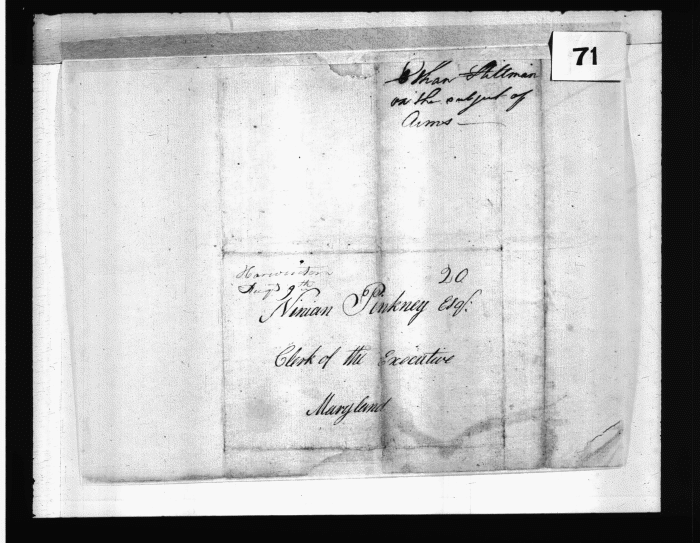 71
Ethan Stillman
on the subject of
Arms —
Harwinton
Augt 9th
20
Ninian Pinkney Esqr.
Clerk of the Executive
Maryland